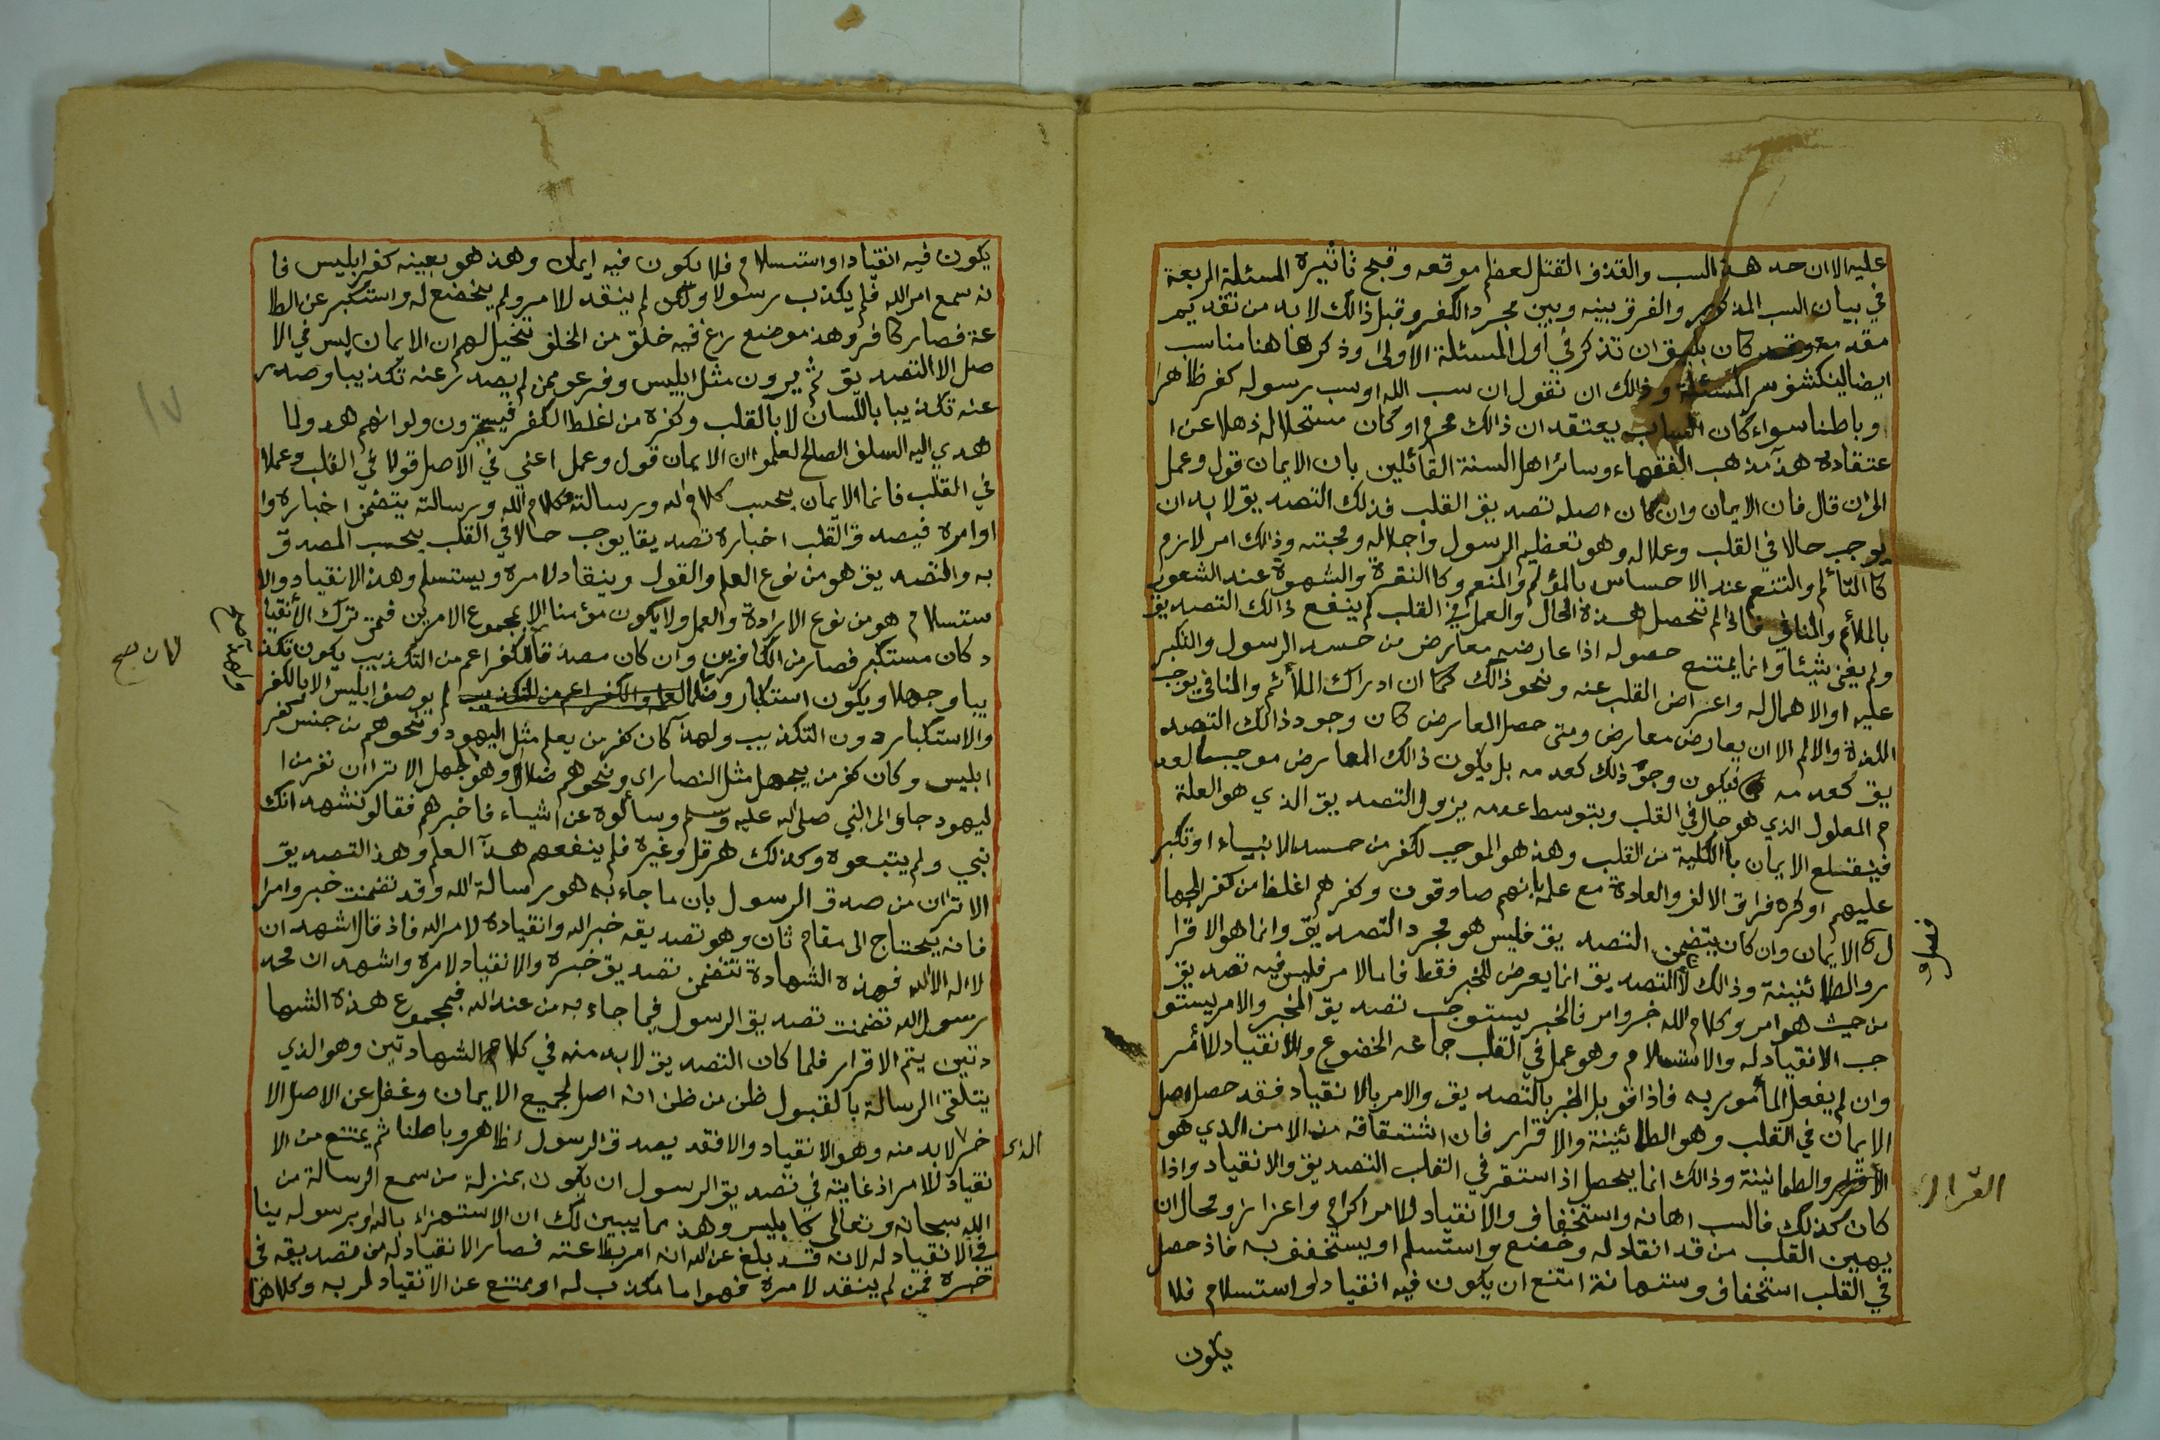 عليه الا ان حد هذ السب والقذف القتل لعظم موقعه وقبح تاثيره المسئلة الربعة
في بيان السب المذكور والفرق بينه وبين مجرد الكفر وقبل ذالك لا بد من تقديم
مقدمة وقد كان يليق ان تذكر في اول المسئلة الأولىٰ وذكرها هنا مناسب
ايضا لينكشف سر المسئلة وذالك ان نقول ان سب الله او سب رسوله كفر ظاهرا
وباطنا سواء كان الساب يعتقد ان ذالك محرم او كان مستحلا له ذهلا عن ا
عتقاده هذا مذهب الفقهاء وسائر اهل السنة القائلين بان الايمان قول وعمل
الى ان قال فان الايمان وان كان اصله تصديق القلب فذلك التصديق لا بد ان
يوجب حالا في القلب وعملا له وهو تعظيم الرسول واجلاله ومحبته وذالك امر لازم
كا التألم والتنعم عند الاحساس بالمؤلم والمنعم وكا النفرة والشهوة عند الشعور
بالملأئم والمنافي فاذا لم تحصل هذه الحال والعمل في القلب لم ينفع ذالك التصديق
ولم يغن شيئا وانما يمتنع حصوله اذا عارضه معارض من حسد الرسول والتكبر
عليه او الاهمال له واعراض القلب عنه ونحو ذالك كما ان ادراك الملأئم والمنافي يوجب
اللذة والالم الا ان يعارض معارض ومتى حصل المعارض كان وجود ذالك التصد
يق كعدمه فيكون وجود ذلك كعدمه بل يكون ذالك المعارض موجبا لعد
م المعلول الذي هو حال في القلب وبتوسط عدمه يزول التصديق الذي هو العلة
فينقلع الايمان باالكلية من القلب وهذ هو الموجب لكفر من حسد الانبياء او تكبر
عليهم اوكره فراق الالف والعادة مع علمه بانهم صادقون وكفرهم اغلظ من كفر الجها
ل ة الايمان وان كان يتضمن التصديق فليس هو مجرد التصديق وانما هو الاقرا
ر والطمائنينة وذالك لأ التصديق انما يعرض للخبر فقط فاما الامر فليس فيه تصديق
من حيث هو امر وكلام الله خبر وامر فالخبر يستوجب تصديق المخبر والامر يستو
جب الانقياد له والاستسلام وهو عمل في القلب جماعه الخضوع والانقياد للأمر
وان لم يفعل المأمور به فاذا قوبل الخبر بالتصديق والامر بالانقياد فقد حصل اصل
الايمان في القلب وهو الطمائنينة والاقرار فان اشتقاقه من الامن الذي هو
الأقرار والطمانينة وذالك انما يحصل اذا استقر في القلب التصديق والانقياد واذا
كان كذلك فالسب اهانه واستخفاف والانقياد للامر اكرام واعزاز ومحال ان
يهين القلب من قد انقاد له وخضع واستسلم او يستخفف به فاذ حصل
في القلب استخفاف وستهانة امتنع ان يكون فيه انقيادا واستسلام فلا
القرار
يكون
يكون فيه انقيادا واستسلام فلا يكون فيه ايمان وهذ هو بعينه كفر ابليس فا
نه سمع امر الله فلم يكذب رسولا ولكن لم ينقد للامر ولم يخضع له واستكبر عن الطا
عة فصار كافر وهذ موضع زغ فيه خلق من الخلف تخيل لهم ان الايمان ليس في الا
صل الا التصديق ثم يرون مثل ابليس وفرعو ممن لم يصدر عنه تكذيبا وصدر
عنه تكذيبا باللسان لا بالقلب وكفره من اغلظ الكفر فيتحيرون ولو انهم هدو لما
هدي اليه السلف الصالح لعلموا ان الايمان قول وعمل اعني في الاصل قولا في القلب وعملا
في القلب فانما الايمان بحسب كلام الله ورسالته وكلام الله ورسالته يتضمن اخباره وا
اوامره فيصدق القلب اخباره تصديقا يوجب حالا في القلب بحسب المصدق
به والتصديق هو من نوع العلم والقول وينقاد لامره ويستسلم وهذ الانقياد والا
ستسلام هو من نوع الارادة والعمل ولا يكون مؤمنا الا بمجموع الامرين فمتى ترك الأنقيا
د كان مستكبر فصار من الكافرين وان كان مصدقا فالكفر اعم من التكذيب يكون تكذ
يبا وجهلا ويكون استكبار وظلما لم يوصف ابليس الا بالكفر
والاستكبار دون التكذيب ولهذا كان كفر من يعلم مثل اليهود ونحوهم من جنس كفر
ابليس وكان كفر من يجهل مثل النصارى ونحوهم ضلال وهو الجهل الا ترا ان نفر من ا
ليهود جاؤ الى النبي صلى الله عليه وسلم وسألوه عن اشياء فاخبرهم فقالو نشهد انك
نبي ولم يتبعوه وكذلك هرقل وغيره فلم ينفعهم هذا العلم وهذ التصديق
الا ترا ان من صدق الرسول بان ما جاء به هو رسالة الله وقد تضمنت خبر وامرا
فانه يحتاج الى مقام ثان وهو تصديقه خبر الله وانقياده لامر الله فاذ قال اشهد ان
لا اله الا الله فهذه الشهادة تتضمن تصديق خبره والانقياد لامره واشهد ان محمد
رسول الله تضمنت تصديق الرسول فيما جاء به من عند الله فبمجموع هذه الشها
دتين يتم الاقرار فلما كان التصديق لا بد منه في كلام الشهادتين وهو الذي
يتلقى الرسالة بالقبول ظن من ظن انه اصل لجميع الايمان وغفل عن الاصل الا
خر لا بد منه وهو الانقياد والا فقد يصدق الرسول ظاهر وباطنا ثم يمتنع من الا
نقياد للامر اذ غايته في تصديق الرسول ان يكون بمنزلة من سمع الرسالة من
الله سبحانه وتعالى كابليس وهذ مما يبين لك ان الاستهزاء بالله او برسوله ينا
في الانقياد له لانه قد بلغ عن الله انه امر بطاعته فصار الانقياد له من تصديقه في
خبره فمن لم ينقد لامره فهو اما مكذب له او ممتنع عن الانقياد لربه وكلاهما
الذي
ولهذا صح
كان صح
١٧